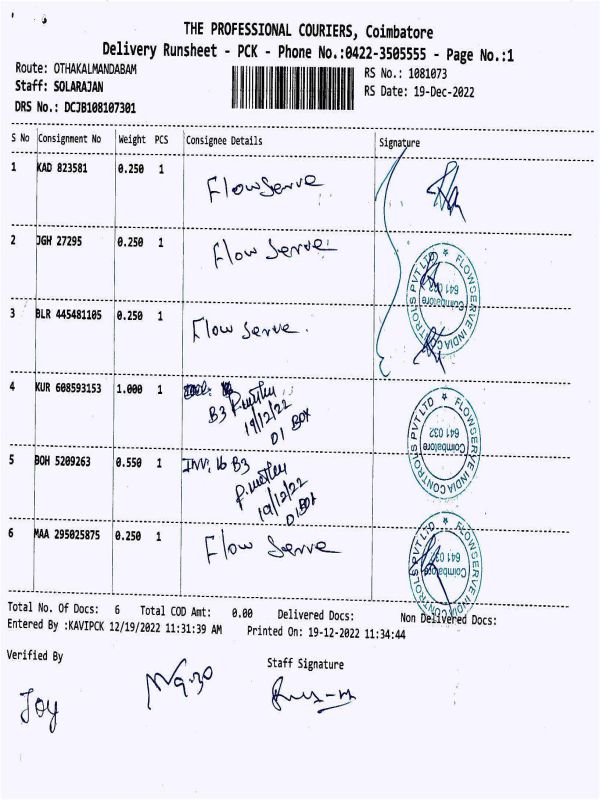 THE PROFESSIONAL COURIERS, Coimbatore
Delivery Runsheet - PCK - Phone No.:0422-3505555 - Page No.:1
Route: OTHAKALMANDABAM
RS No.: 1081073
Staff: SOLARAJAN
RS Date: 19-Dec-2022
DRS No.: DCJB108107301
S No Consignment No Weight PCS Consignee Details Signature
1 KAD 823581 0.250 1 Flow Serve
2 JGH 27295 0.250 1 Flow Serve
FLOWSERVE INDIA CONTROLS PVT LTD
Coimbatore
641 032
3 BLR 445481105 0.250 1 Flow Serve.
4 KUR 608593153 1.000 1
B3
19/12/22
01 BOX
FLOWSERVE INDIA CONTROLS PVT LTD
Coimbatore
641 032
5 BOH 5209263 0.550 1 INV, 16 B3
19/12/22
01 BOX
6 MAA 295025875 0.250 1 Flow Serve
FLOWSERVE INDIA CONTROLS PVT LTD
Coimbatore
641 032
Total No. Of Docs: 6 Total COD Amt: 0.00 Delivered Docs: Non Delivered Docs:
Entered By :KAVIPCK 12/19/2022 11:31:39 AM Printed On: 19-12-2022 11:34:44
Verified By
Staff Signature
Joy